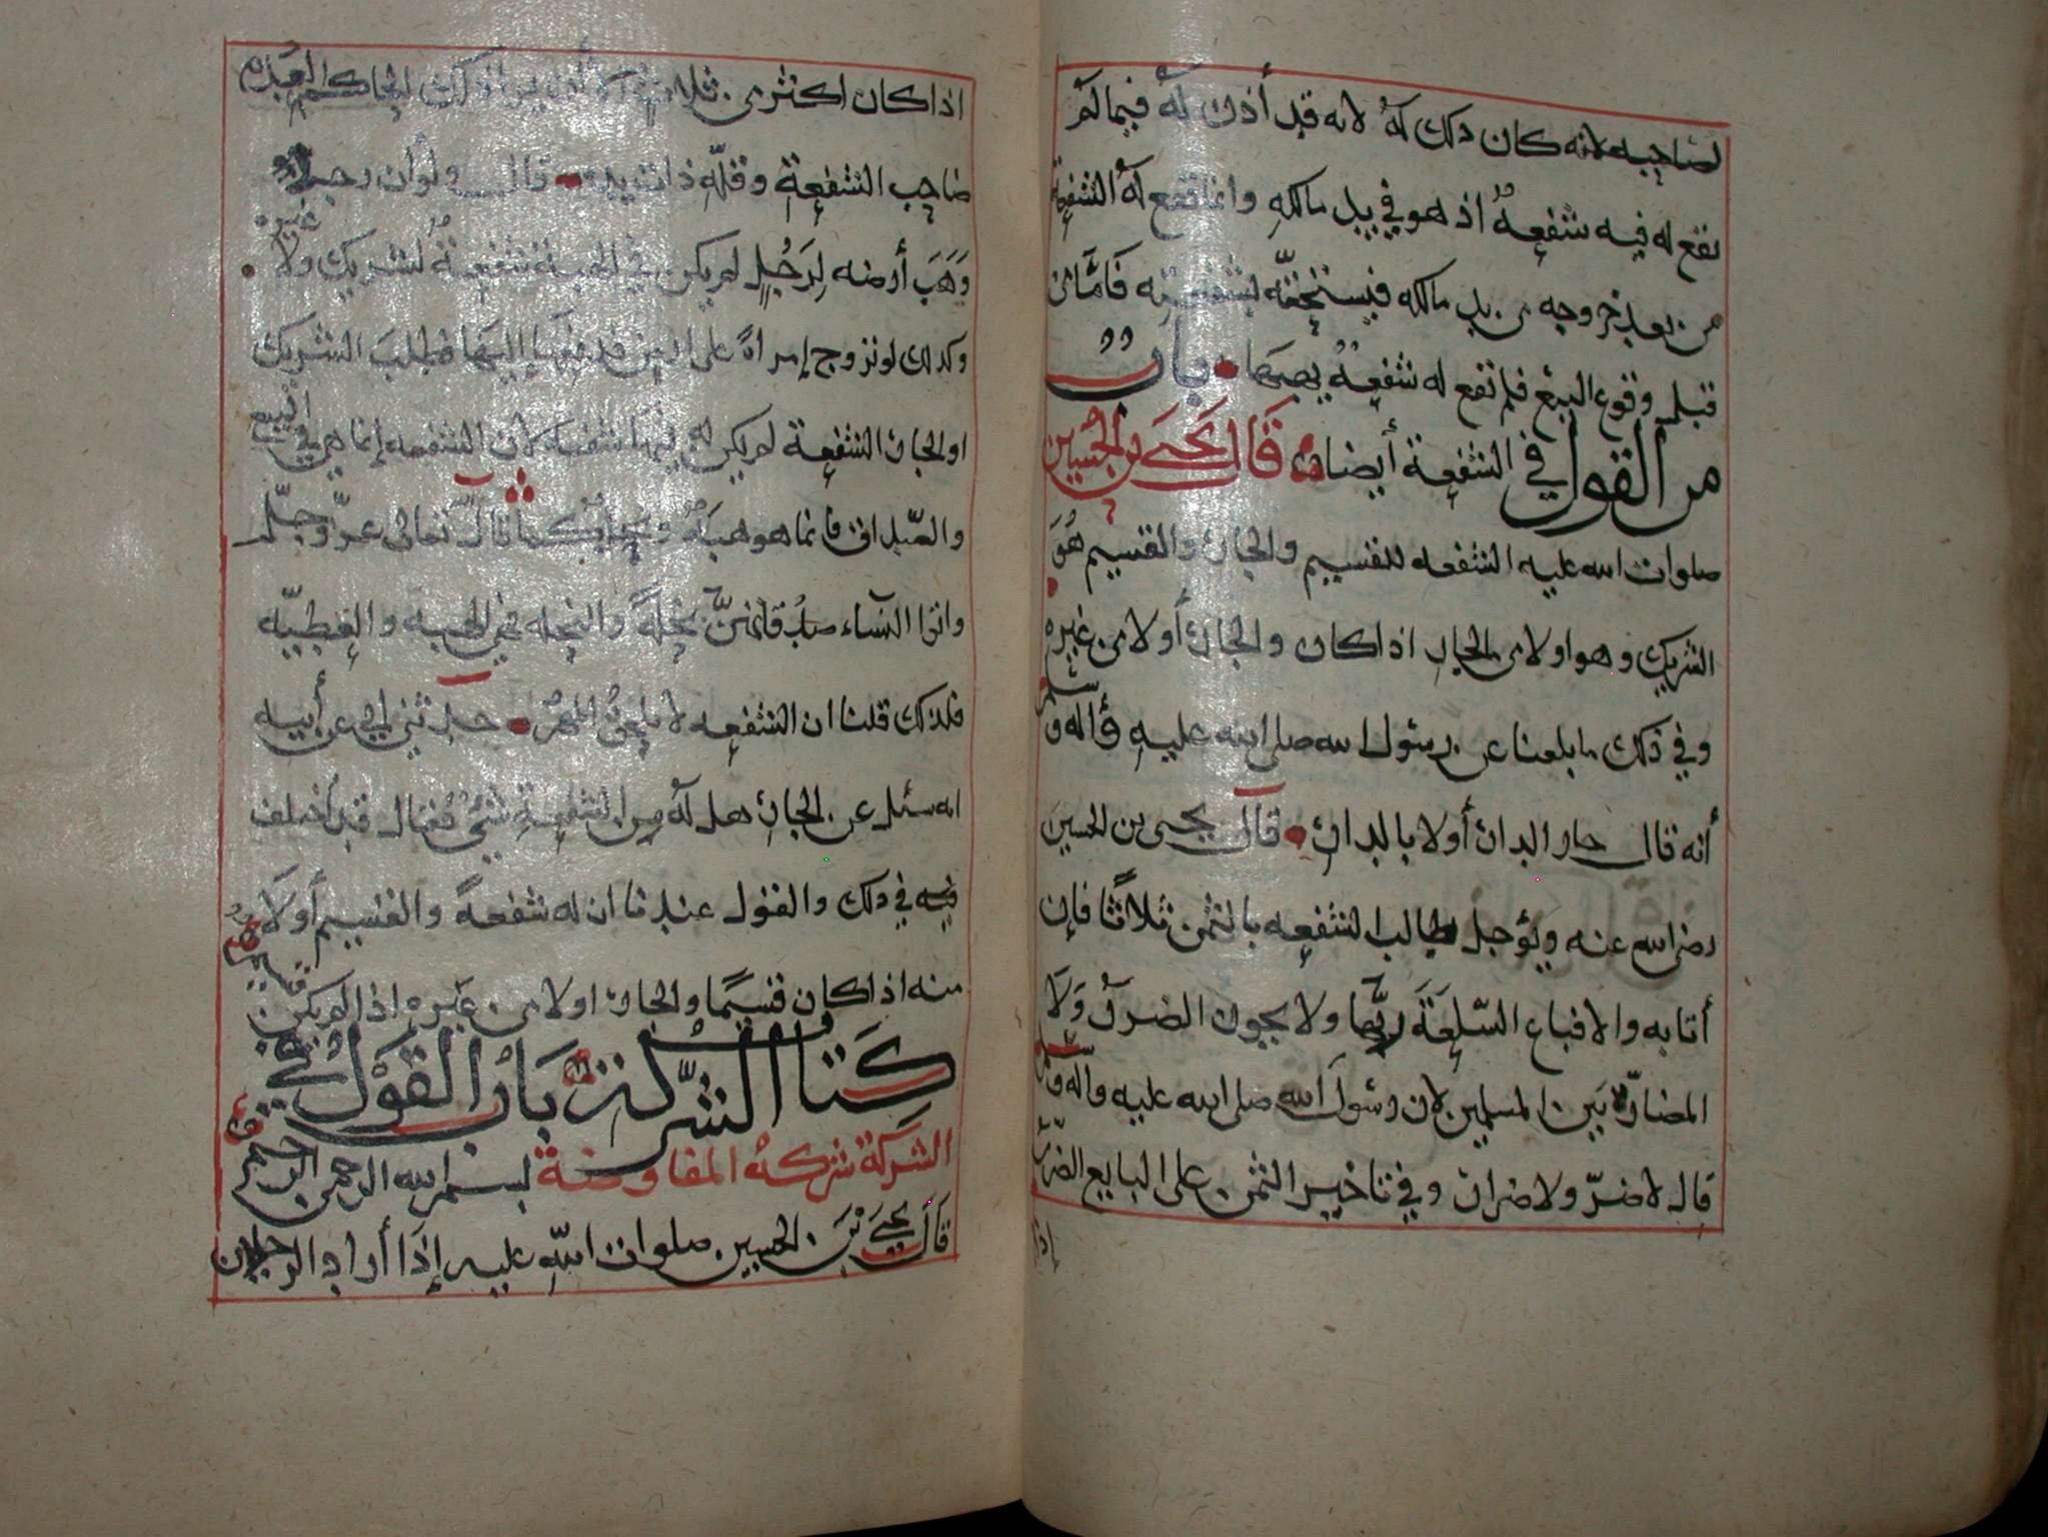 لصاحبه لانه كان ذلك له لانه قد أذن له فيما لم
تقع له فيه شفعة اذ هو في يد مالكه وانما تقع له الشفعة
من بعد خروجه من يد مالكه فيستحقه بشفعته فأما من
قبل وقوع البيع فلم تقع له شفعة بصبها باب
من القول في الشفعة أيضا قال يحيى بن الحسين
صلوات الله عليه الشفعه للقسيم والجار والقسيم هو
الشريك وهو اولا من الجار اذا كان والجار أولا من غيره
وفي ذلك ما بلغنا عن رسول الله صلى الله عليه وآله وسلم
أنه قال جار الدار أولا بالدار قال يحيى بن الحسين
رضى الله عنه ويؤجل طالب الشفعه بالثمن ثلاثا فإن
أتا به والا فباع السلعة ربها ولا يجوز الضرر ولا
المضارة بين المسلمين لان رسول الله صلى الله عليه وآله وسلم
قال لا ضرر ولا ضرار وفي تاخير الثمن على البايع الضرر
إذا
اذا كان اكثر من ثلاث الا أن يرا ذلك الحاكم لعدم
صاحب الشفعة وقلة ذات يده قال ولو أن رجلا
وهب أرضه لرجل لم يكن في الهبة شفعة لشريك ولا غيره
وكذلك لو تزوج إمراة على ارض فدفعها إليها فطلب الشريك
او الجار الشفعة لم يكن له فيها شفعة لان الشفعه إنما هي في البيع
والصداق فانما هو هبة كما قال تعالى عز وجل
واتوا النساء صدقاتهن نحلة والنحله فهي الهبه والعطيه
فلذلك قلنا ان الشفعه لا تلحق المهر حدثني ابي عن أبيه
انه سئل عن الجار هل له من الشفعة شيء فقال قد اختلف
فيه في ذلك والقول عندنا ان له شفعة والقسيم أولا
منه اذا كان قسيما والجار اولا من غيره اذا لم يكن قسيم
كتاب الشركة باب القول في
الشركة شركة المفاوضة بسم الله الرحمن الرحيم
قال يحيى بن الحسين صلوات الله عليه إذا أراد الرجلان